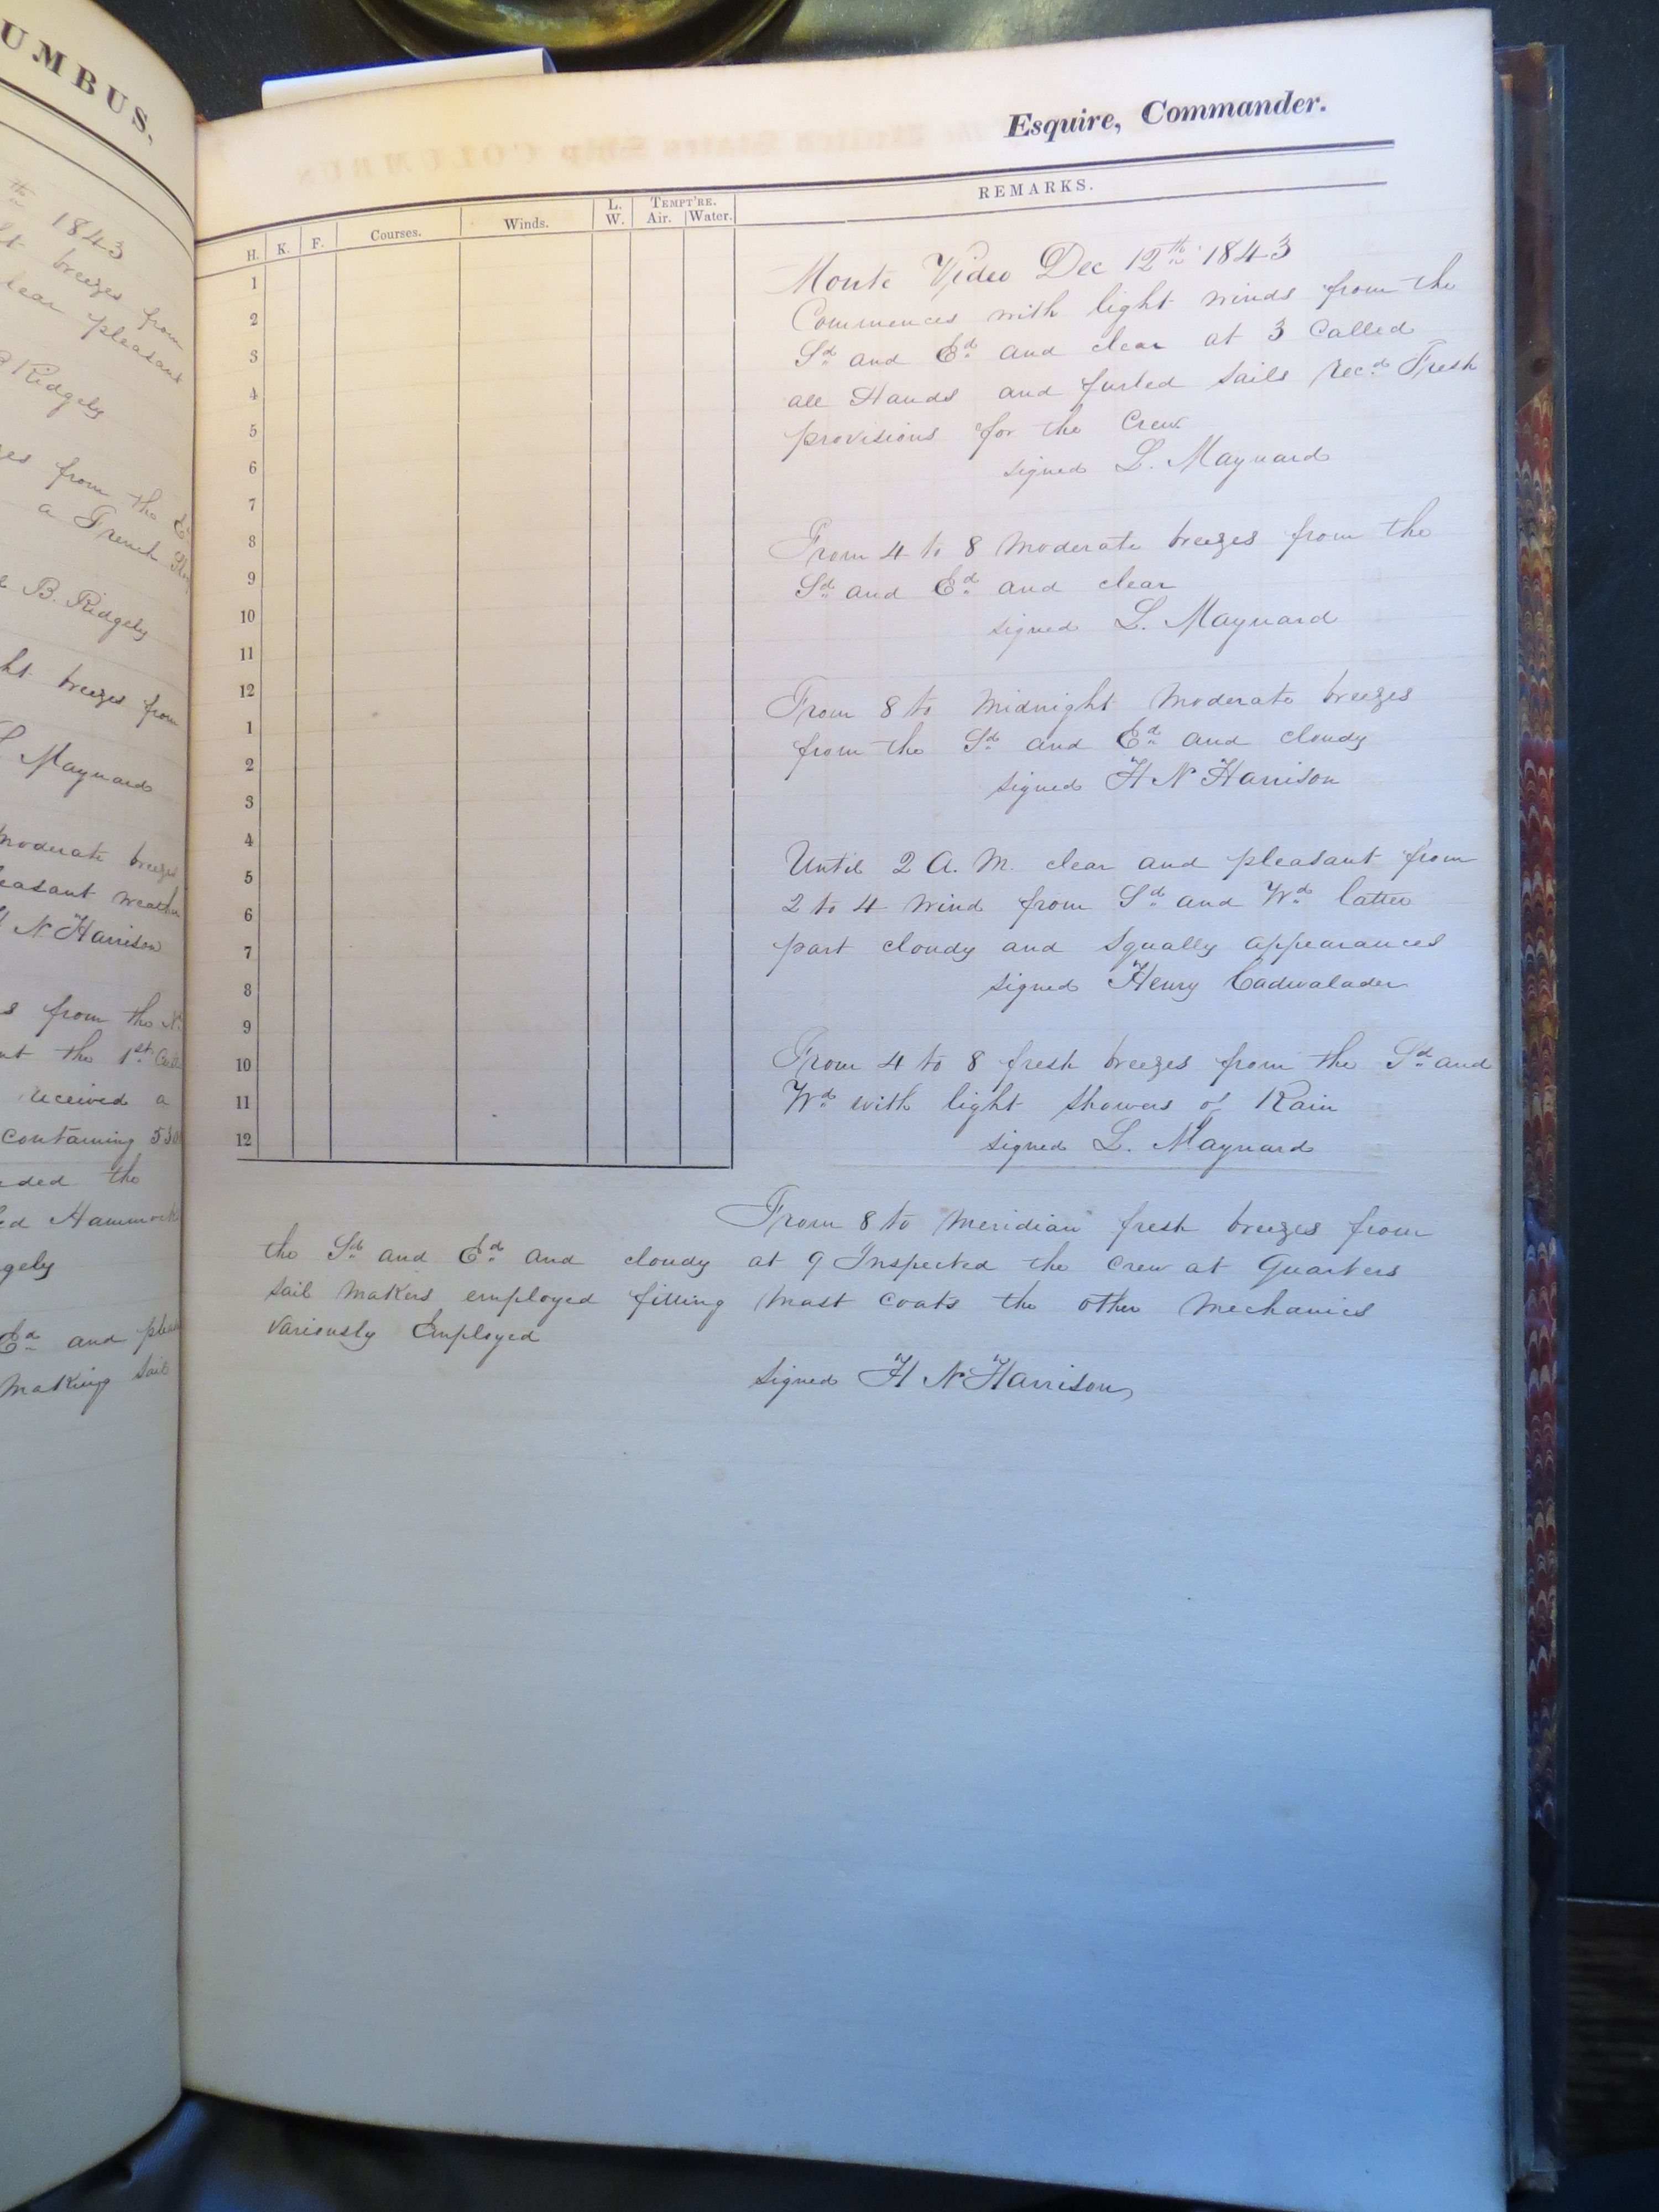 UMBUS.
th 1843
breezes from
lear pleasant
Ridgely
es from the E
a French
B. Ridgely
ht breezes from
Maynard
moderate breezes
easant weather
N Harrison
s from the N
the 1st
received a
containing
ded the
ed Hammock
gely
Ed and
making sail
Esquire, Commander.
H. K. F. Courses. Winds. L. W. TEMPT'RE. Air. Water. REMARKS.
1
2
3
4
5
6
7
8
9
10
11
12
1
2
3
4
5
6
7
8
9
10
11
12
Monte Video Dec 12th 1843
Commences with light winds from the
Sd and Ed and clear at 3 Called
all Hands and furled sails Recd Fresh
provisions for the Crew
signed L. Maynard
From 4 to 8 moderate breezes from the
Sd and Ed and clear
signed L. Maynard
From 8 to Midnight Moderate breezes
from the Sd and Ed and cloudy
signed H N Harrison
Until 2 A. M. clear and pleasant from
2 to 4 wind from Sd and Wd latter
part cloudy and Squally appearances
signed Henry Cadwalader
From 4 to 8 fresh breezes from the Sd and
Wd with light showers of Rain
signed L. Maynard
From 8 to Meridian fresh breezes from
the Sd and Ed and cloudy at 9 Inspected the crew at Quarters
sail makers employed fitting Mast coats the other Mechanics
variously Employed
signed H N Harrison